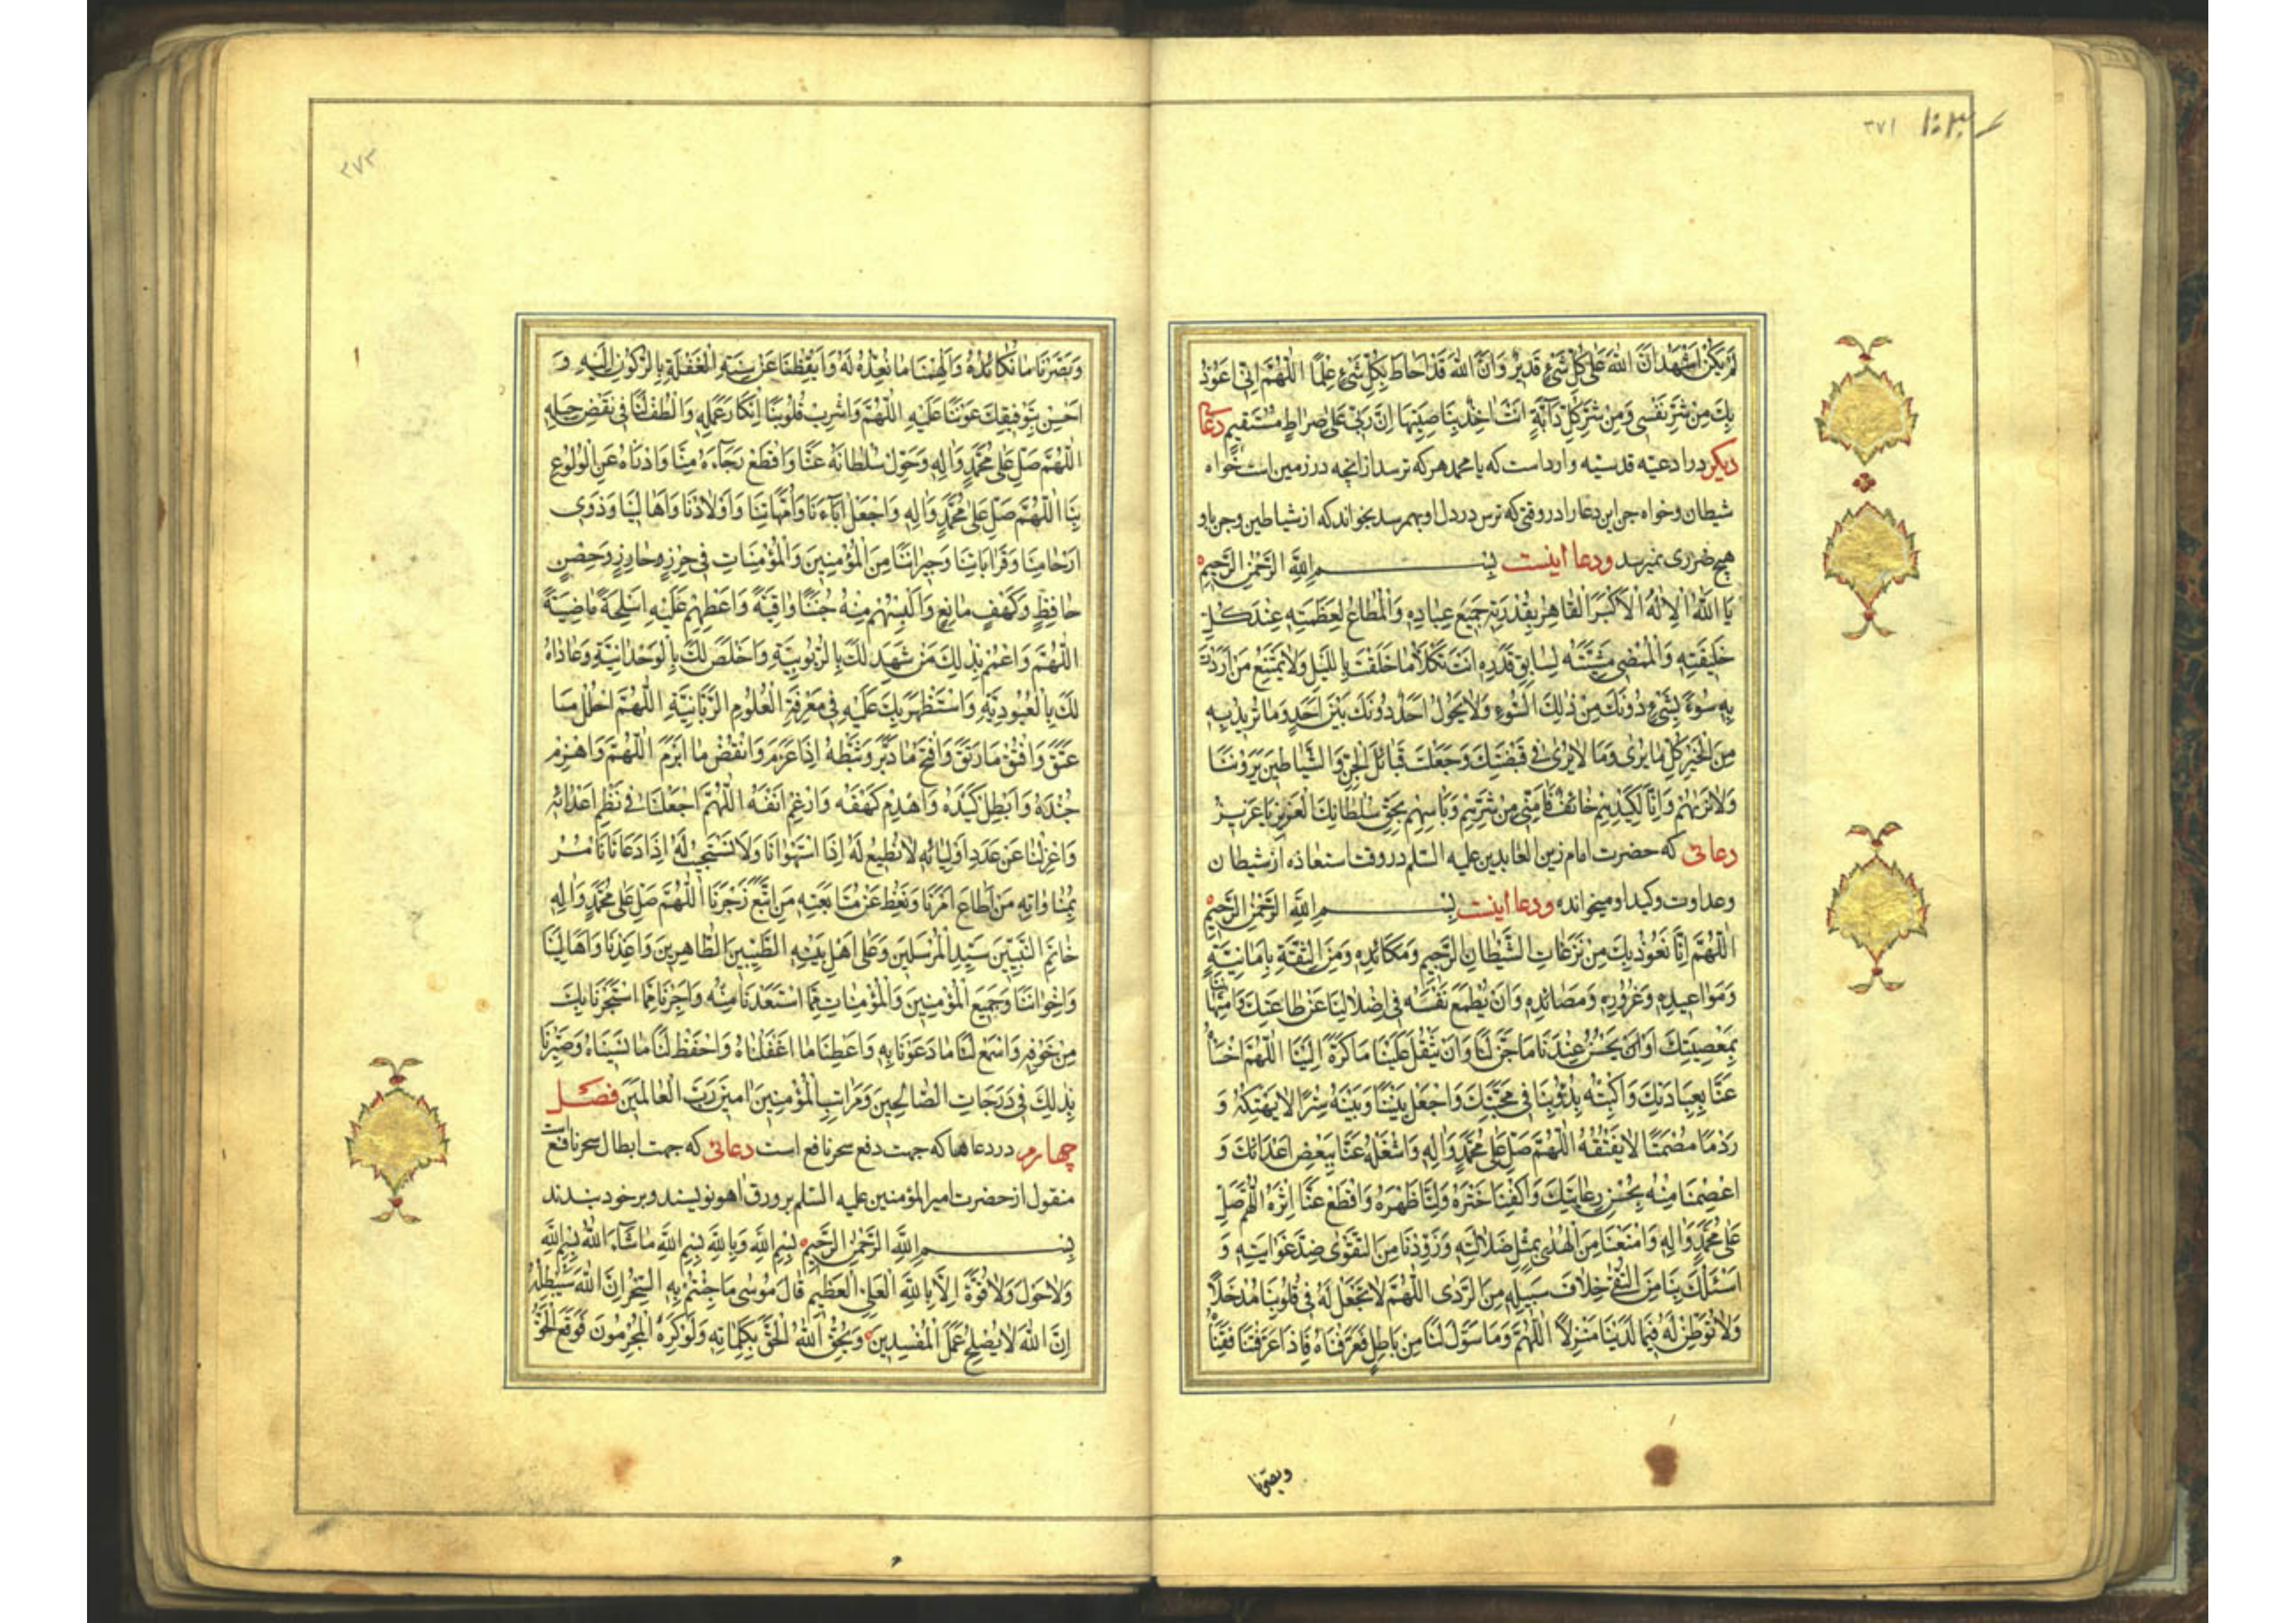 ٣٧١
لَمْ يَكُنْ اَشْهَدُ اَنَّ اللّٰهَ عَلٰى كُلِّ شَىْءٍ قَدِيرٌ وَاَنَّ اللّٰهَ قَدْ اَحَاطَ بِكُلِّ شَىْءٍ عِلْمًا اَللّٰهُمَّ اِنّٖى اَعُوذُ
بِكَ مِنْ شَرِّ نَفْسٖى وَمِنْ شَرِّ كُلِّ دَآبَّةٍ اَنْتَ اٰخِذٌ بِنَاصِيَتِهَا اِنَّ رَبّٖى عَلٰى صِرَاطٍ مُسْتَقِيمٍ دعاء
ديكر در ادعيه قدسيه وارد است كه يا محمد هر كه ترسد از انچه در زمين است خواه
شيطان و خواه جن اين دعا را در وقتى كه ترس در دل او بهم رسد بخواند كه از شياطين و جن باو
هيچ ضررى نميرسد ودعا اينست بِسْمِ اللّٰهِ الرَّحْمٰنِ الرَّحِيمِ
يَا اَللّٰهُ الْاِلٰهُ الْاَكْبَرُ الْقَاهِرُ بِقُدْرَتِهِ جَمِيعَ عِبَادِهِ وَالْمُطَاعُ لِعَظَمَتِهِ عِنْدَ كُلِّ
خَلِيقَتِهِ وَالْمُمْضٖى مَشِيَّتَهُ لِسَابِقِ قَدَرِهِ اَنْتَ تَكْلَأُ مَا خَلَقْتَ بِاللَّيْلِ وَلَا يَمْتَنِعُ مَنْ اَرَدْتَ
بِهِ سُوءً بِشَىْءٍ دُونَكَ مِنْ ذٰلِكَ السُّوءِ وَلَا يَحُولُ اَحَدٌ دُونَكَ بَيْنَ اَحَدٍ وَمَا تُرِيدُ بِهِ
مِنَ الْخَيْرِ كُلُّ مَا يُرٰى وَمَا لَا يُرٰى فٖى قَبْضَتِكَ وَجَعَلْتَ قَبَائِلَ الْجِنِّ وَالشَّيَاطِينَ يَرَوْنَنَا
وَلَا نَرٰيهُمْ وَاَنَا لِكَيْدِهِمْ خَائِفٌ فَاٰمِنّٖى مِنْ شَرِّهِمْ وَبَأْسِهِمْ بِحَقِّ سُلْطَانِكَ الْعَزِيزِ يَا عَزِيزُ
دعائى كه حضرت امام زين العابدين عليه السلم در وقت استعاذه از شيطان
وعداوت وكيد او ميخوانده ودعا اينست بِسْمِ اللّٰهِ الرَّحْمٰنِ الرَّحِيمِ
اَللّٰهُمَّ اِنَّا نَعُوذُ بِكَ مِنْ نَزَغَاتِ الشَّيْطَانِ الرَّجِيمِ وَمَكَائِدِهِ وَمِنَ الثِّقَةِ بِاَمَانِيِّهِ
وَمَوَاعِيدِهِ وَغُرُورِهِ وَمَصَائِدِهِ وَاَنْ يُطْمِعَ نَفْسَهُ فٖى اِضْلَالِنَا عَنْ طَاعَتِكَ وَامْتِهَانِنَا
بِمَعْصِيَتِكَ اَوْ اَنْ يَحْسُنَ عِنْدَنَا مَا حَسَّنَ لَنَا وَاَنْ يَثْقُلَ عَلَيْنَا مَا كَرَّهَ اِلَيْنَا اَللّٰهُمَّ اخْسَأْهُ
عَنَّا بِعِبَادَتِكَ وَاكْبِتْهُ بِدُؤُبِنَا فٖى مَحَبَّتِكَ وَاجْعَلْ بَيْنَنَا وَبَيْنَهُ سِتْرًا لَا يَهْتِكُهُ وَ
رَدْمًا مُصْمَتًا لَا يَفْتُقُهُ اَللّٰهُمَّ صَلِّ عَلٰى مُحَمَّدٍ وَاٰلِهِ وَاشْغَلْهُ عَنَّا بِبَعْضِ اَعْدَائِكَ وَ
اعْصِمْنَا مِنْهُ بِحُسْنِ رِعَايَتِكَ وَاكْفِنَا خَتْرَهُ وَوَلِّنَا ظَهْرَهُ وَاقْطَعْ عَنَّا اِثْرَهُ اَللّٰهُمَّ صَلِّ
عَلٰى مُحَمَّدٍ وَاٰلِهِ وَامْتِعْنَا مِنَ الْهُدٰى بِمِثْلِ ضَلَالَتِهِ وَزَوِّدْنَا مِنَ التَّقْوٰى ضِدَّ غَوَايَتِهِ وَ
اسْلُكْ بِنَا مِنَ التُّقٰى خِلَافَ سَبِيلِهِ مِنَ الرَّدٰى اَللّٰهُمَّ لَا تَجْعَلْ لَهُ فٖى قُلُوبِنَا مَدْخَلًا
وَلَا تُوَطِّنَنَّ لَهُ فِيمَا لَدَيْنَا مَنْزِلًا اَللّٰهُمَّ وَمَا سَوَّلَ لَنَا مِنْ بَاطِلٍ فَعَرِّفْنَاهُ فَاِذَا عَرَّفْتَنَا فَقِنَا
وبصّرنا
٣٧٢
وَبَصِّرْنَا مَا نُكَائِدُهُ وَاَلْهِمْنَا مَا نُعِدُّهُ لَهُ وَاَيْقِظْنَا عَنْ سِنَةِ الْغَفْلَةِ بِالرُّكُونِ اِلَيْهِ وَ
اَحْسِنْ بِتَوْفِيقِكَ عَوْنَنَا عَلَيْهِ اَللّٰهُمَّ وَاَشْرِبْ قُلُوبَنَا اِنْكَارَ عَمَلِهِ وَالْطُفْ لَنَا فٖى نَقْضِ حِيَلِهِ
اَللّٰهُمَّ صَلِّ عَلٰى مُحَمَّدٍ وَاٰلِهِ وَحَوِّلْ سُلْطَانَهُ عَنَّا وَاقْطَعْ رَجَاءَهُ مِنَّا وَادْرَأْهُ عَنِ الْوُلُوعِ
بِنَا اَللّٰهُمَّ صَلِّ عَلٰى مُحَمَّدٍ وَاٰلِهِ وَاجْعَلْ اٰبَاءَنَا وَاُمَّهَاتِنَا وَاَوْلَادَنَا وَاَهَالِيَنَا وَذَوٖى
اَرْحَامِنَا وَقَرَابَاتِنَا وَجِيرَانَنَا مِنَ الْمُؤْمِنِينَ وَالْمُؤْمِنَاتِ فٖى حِرْزٍ حَارِزٍ وَحِصْنٍ
حَافِظٍ وَكَهْفٍ مَانِعٍ وَاَلْبِسْهُمْ مِنْهُ جُنَنًا وَاقِيَةً وَاَعْطِهِمْ عَلَيْهِ اَسْلِحَةً مَاضِيَةً
اَللّٰهُمَّ وَاعْمُمْ بِذٰلِكَ مَنْ شَهِدَ لَكَ بِالرُّبُوبِيَّةِ وَاَخْلَصَ لَكَ بِالْوَحْدَانِيَّةِ وَعَادَاهُ
لَكَ بِالْعُبُودِيَّةِ وَاسْتَظْهَرَ بِكَ عَلَيْهِ فٖى مَعْرِفَةِ الْعُلُومِ الرَّبَّانِيَّةِ اَللّٰهُمَّ احْلُلْ مَا
عَقَدَ وَافْتُقْ مَا رَتَقَ وَافْسَخْ مَا دَبَّرَ وَثَبِّطْهُ اِذَا عَزَمَ وَانْقُضْ مَا اَبْرَمَ اَللّٰهُمَّ وَاهْزِمْ
جُنْدَهُ وَاَبْطِلْ كَيْدَهُ وَاهْدِمْ كَهْفَهُ وَاَرْغِمْ اَنْفَهُ اَللّٰهُمَّ اجْعَلْنَا فٖى نَظْمِ اَعْدَائِهِ
وَاعْزِلْنَا عَنْ عِدَادِ اَوْلِيَائِهِ لَا نُطِيعُ لَهُ اِذَا اسْتَهْوَانَا وَلَا نَسْتَجِيبُ لَهُ اِذَا دَعَانَا نَأْمُرُ
بِمُنَاوَاتِهِ مَنْ اَطَاعَ اَمْرَنَا وَنَعِظُ عَنْ مُتَابَعَتِهِ مَنِ اتَّبَعَ زَجْرَنَا اَللّٰهُمَّ صَلِّ عَلٰى مُحَمَّدٍ وَاٰلِهِ
خَاتَمِ النَّبِيِّينَ سَيِّدِ الْمُرْسَلِينَ وَعَلٰى اَهْلِ بَيْتِهِ الطَّيِّبِينَ الطَّاهِرِينَ وَاَعِذْنَا وَاَهَالِيَنَا
وَاِخْوَانَنَا وَجَمِيعَ الْمُؤْمِنِينَ وَالْمُؤْمِنَاتِ مِمَّا اسْتَعَذْنَا مِنْهُ وَاَجِرْنَا مِمَّا اسْتَجَرْنَا بِكَ
مِنْ خَوْفِهِ وَاسْمَعْ لَنَا مَا دَعَوْنَا بِهِ وَاَعْطِنَا مَا اَغْفَلْنَاهُ وَاحْفَظْ لَنَا مَا نَسِينَاهُ وَصَيِّرْنَا
بِذٰلِكَ فٖى دَرَجَاتِ الصَّالِحِينَ وَمَرَاتِبِ الْمُؤْمِنِينَ اٰمِينَ رَبَّ الْعَالَمِينَ فصل
چهارم در دعاها كه جهت دفع سحر نافع است دعائى كه جهت ابطال سحر نافع است
منقول از حضرت امير المؤمنين عليه السلم بر ورق اهو نويسند و بر خود بندند
بِسْمِ اللّٰهِ الرَّحْمٰنِ الرَّحِيمِ بِسْمِ اللّٰهِ وَبِاللّٰهِ بِسْمِ اللّٰهِ مَاشَاءَ اللّٰهُ بِسْمِ اللّٰهِ
وَلَا حَوْلَ وَلَا قُوَّةَ اِلَّا بِاللّٰهِ الْعَلِىِّ الْعَظِيمِ قَالَ مُوسٰى مَا جِئْتُمْ بِهِ السِّحْرُ اِنَّ اللّٰهَ سَيُبْطِلُهُ
اِنَّ اللّٰهَ لَا يُصْلِحُ عَمَلَ الْمُفْسِدِينَ وَيُحِقُّ اللّٰهُ الْحَقَّ بِكَلِمَاتِهِ وَلَوْ كَرِهَ الْمُجْرِمُونَ فَوَقَعَ الْحَقُّ